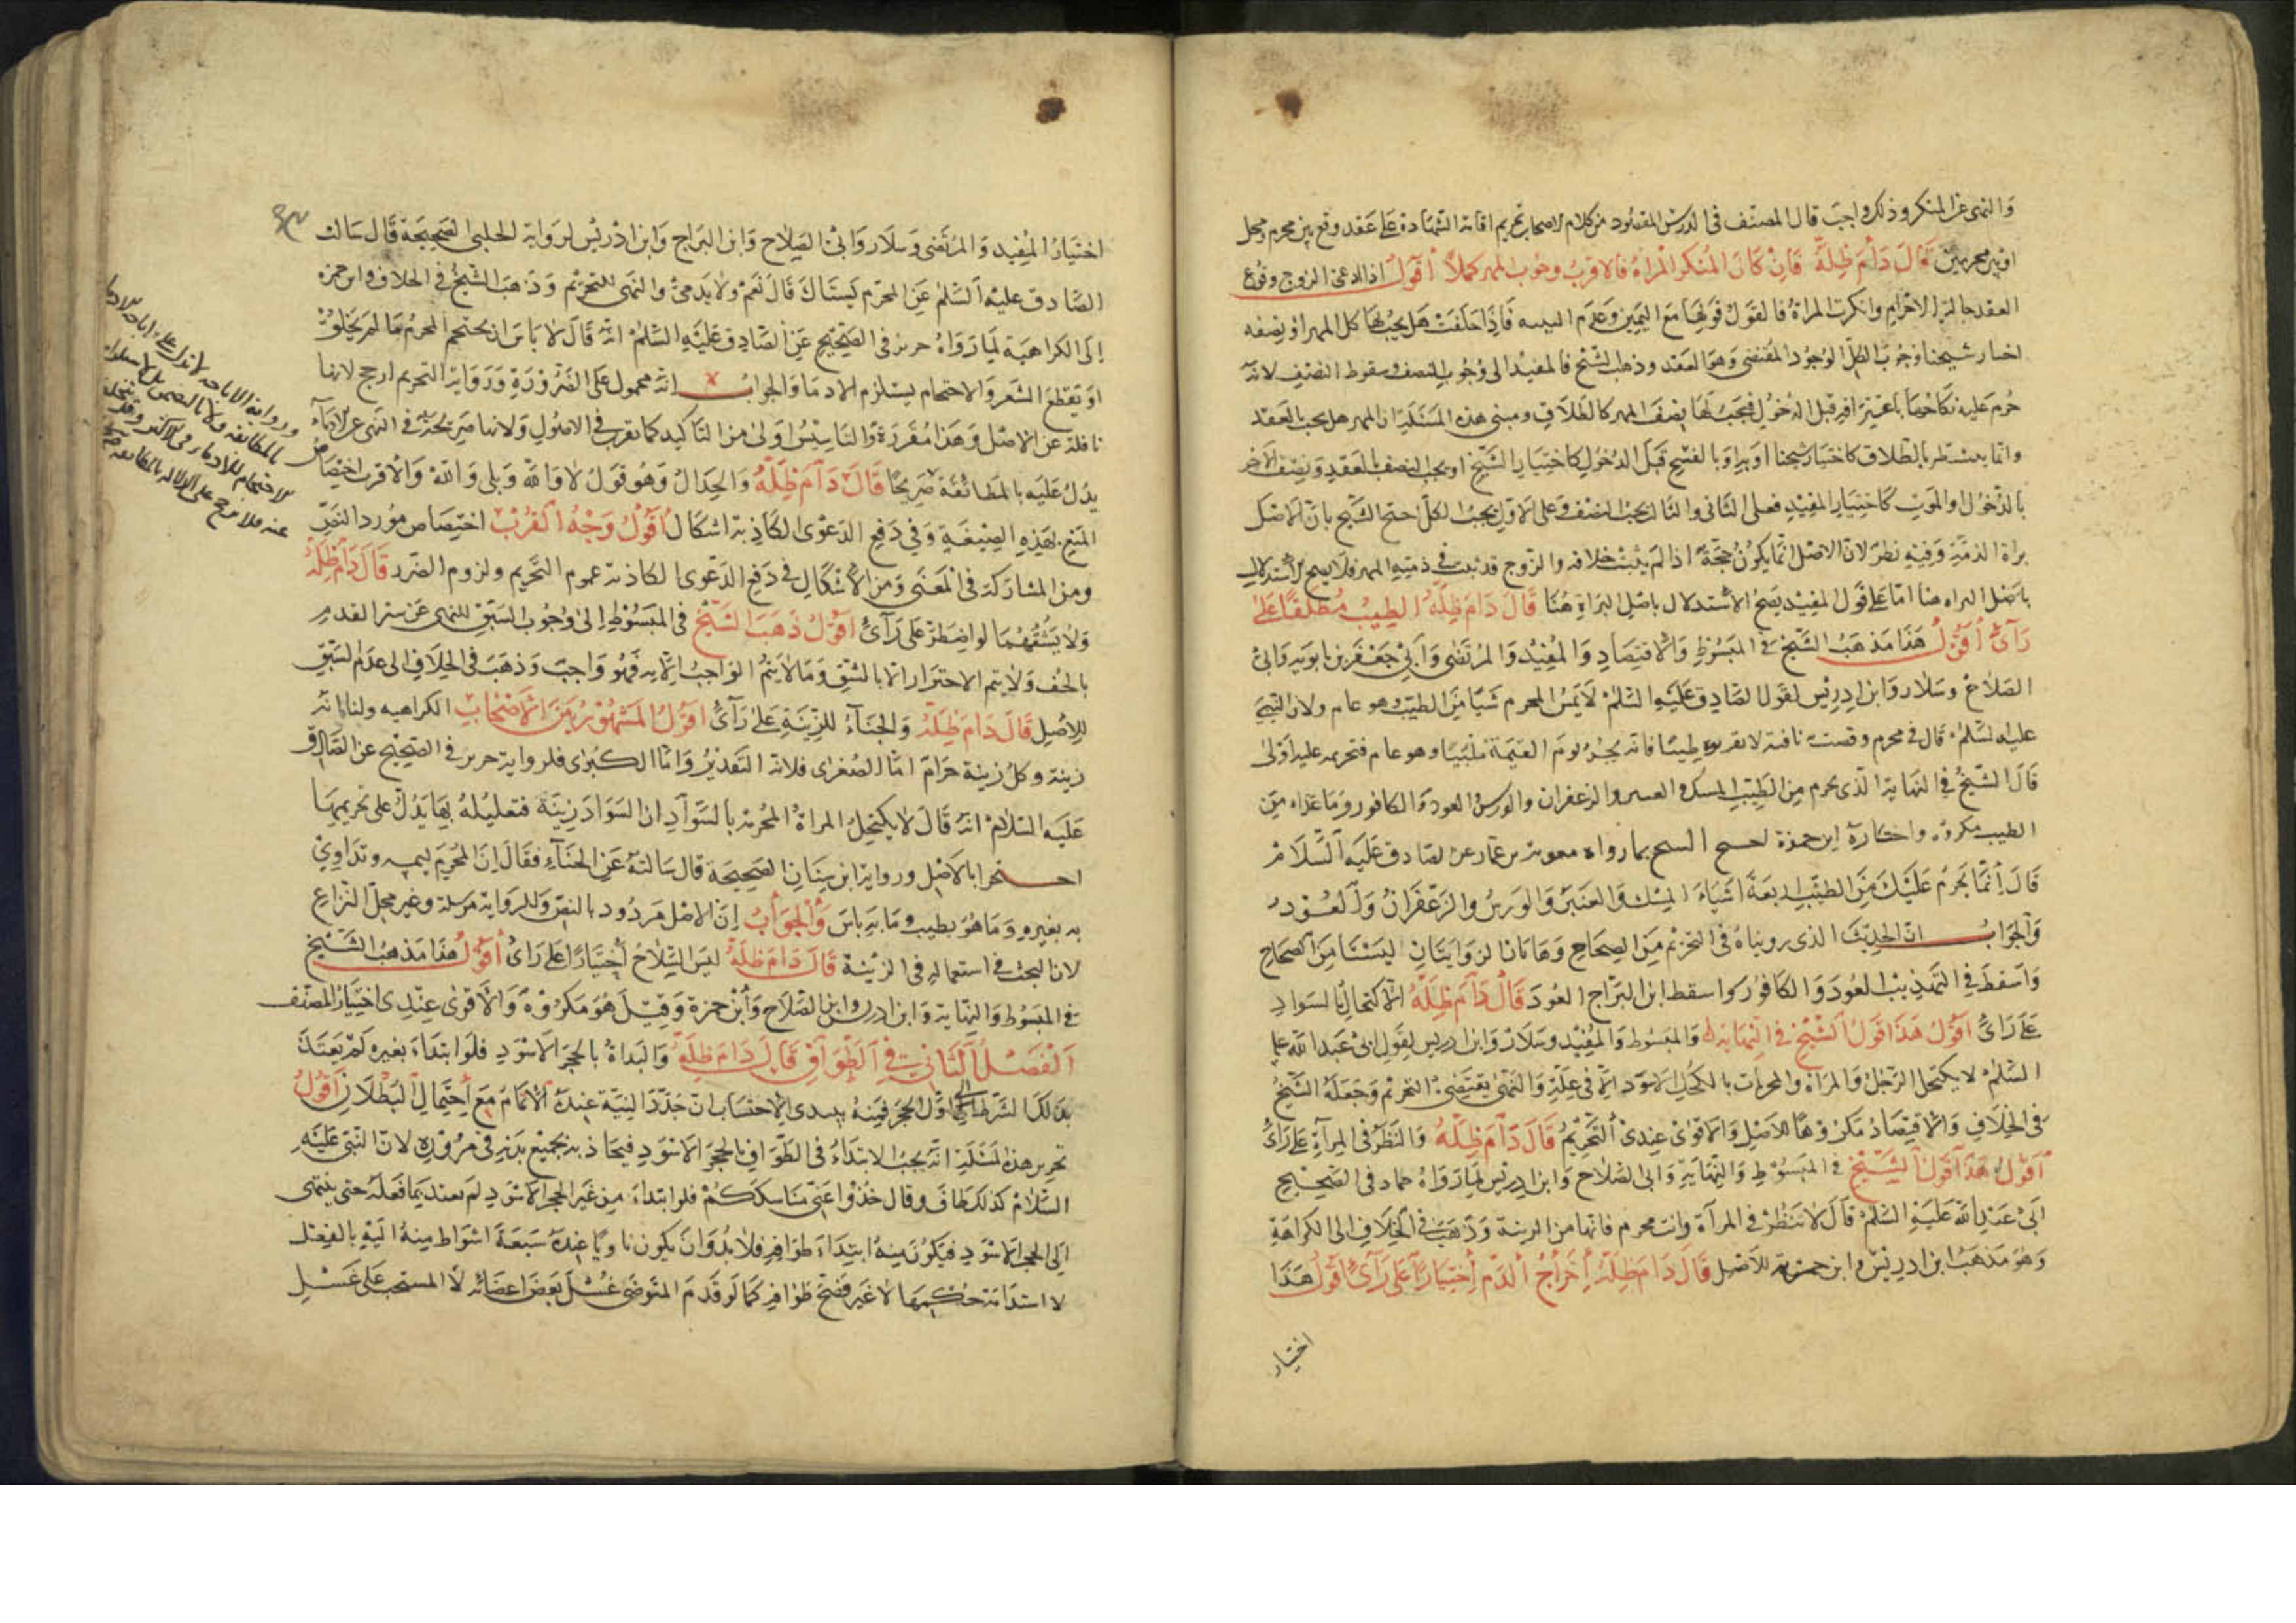 والنهى عن المنكر وذلك واجب قال المصنف فى الدرس المقصود من كلام الاصحاب تحريم اقامة الشهادة على عقد وقع بين محرم ومحل
او بين محرمين قال دام ظله فان كان المنكر المراة فالاقرب وجوب المهر كملا اقول اذا ادعى الزوج وقوع
العقد حالة الاحرام وانكرت المراة فالقول قولها مع اليمين وعدم البينه فاذا حلفت هل يجب لها كل المهر او نصفه
اختار شيخنا وجوب الكل لوجود المقتضى وهو العقد وذهب الشيخ فالمفيد الى وجوب النصف وسقوط النصف لانه
حرم عليه نكاحها باعترافه قبل الدخول فيجب لها نصف المهر كالطلاق ومبنى هذه المسئلة ان المهر هل يجب بالعقد
وانما يتشطر بالطلاق كاختيار شيخنا او به او بالفسخ قبل الدخول كاختيار الشيخ او يجب النصف بالعقد ونصف الاخر
بالدخول او الموت كاختيار المفيد فعلى الثانى والثالث يجب النصف وعلى الاول يجب الكل احتج الشيخ بان الاصل
براة الذمة وفيه نظر لان الاصل انما يكون حجة اذا لم يثبت خلافه والزوج قد ثبت فى ذمته المهر فلا يصح الاستدلال
باصل البراه هنا اما على قول المفيد يصح الاستدلال باصل البراة هنا قال دام ظله الطيب مطلقا على
راى اقول هذا مذهب الشيخ فى المبسوط والاقتصاد والمفيد والمرتضى وابى جعفر بن بابويه وابى
الصلاح وسلار وابن ادريس لقول الصادق عليه السلم لا يمس المحرم شيا من الطيب وهو عام ولان النبى
عليه السلم قال فى محرم وقصت ناقته لا تقربوه طيبا فانه يحشر يوم القيمة ملبيا وهو عام فتحريمه عليه اولى
قال الشيخ فى النهاية الذى يحرم من الطيب المسك والعنبر والزعفران والورس والعود والكافور وما عداه من
الطيب مكروه واختاره ابن حمزة احتج الشيخ بما رواه معوية بن عمار عن الصادق عليه السلام
قال انما يحرم عليك من الطيب اربعة اشياء المسك والعنبر والورس والزعفران والعود
والجواب ان الحديث الذى رويناه فى التحريم من الصحاح وهاتان الروايتان ليستا من الصحاح
واسقط فى التهذيب العود والكافور واسقط ابن البراج العود قال دام ظله الاكتحال بالسواد
على راى اقول هذا قول الشيخ فى النهاية والمبسوط والمفيد وسلار وابن ادريس لقول ابى عبد الله عليه
السلم لا يكتحل الرجل والمراة والمحرمات بالكحل الاسود الا فى علة والنهى يقتضى التحريم وجعله الشيخ
فى الخلاف والاقتصاد مكروها للاصل والاقوى عندى التحريم قال دام ظله والنظر فى المراة على راى
اقول هذا قول الشيخ فى المبسوط والنهاية وابى الصلاح وابن ادريس لما رواه حماد فى الصحيح
ابى عبد الله عليه السلم قال لا تنظر فى المرآة وانت محرم فانها من الزينة وذهب فى الخلاف الى الكراهة
وهو مذهب ابن ادريس وابن حمزة للاصل قال دام ظله اخراج الدم اختيارا على راى اقول هذا
اختيار
اختيار المفيد والمرتضى وسلار وابى الصلاح وابن البراج وابن ادريس لرواية الحلبى الصحيحة قال سالت
الصادق عليه السلم عن المحرم يستاك قال نعم ولا يدمى والنهى للتحريم وذهب الشيخ فى الخلاف وابن حمزه
الى الكراهية لما رواه حريز فى الصحيح عن الصادق عليه السلم انه قال لا باس ان يحتجم المحرم ما لم يحلق
او يقطع الشعر والاحتجام يستلزم الادما والجواب انه محمول على الضرورة ورواية التحريم ارجح لانها
ناقلة عن الاصل وهذا مقررة والتاسيس اولى من التاكيد كما تقرر فى الاصول ولانها صريحة فى النهى عن الادماء
يدل عليه بالمطابقة صريحا قال دام ظله والجدال وهو قول لا والله وبلى والله والاقرب اختصاص
المنع بهذه الصيغة وفى دفع الدعوى الكاذبة اشكال اقول وجه القرب اختصاص مورد النص
ومن المشاركة فى المعنى ومن الاشكال فى دفع الدعوى الكاذبة عموم التحريم ولزوم الضرر قال دام ظله
ولا يشقهما لو اضطر على راى اقول ذهب الشيخ فى المبسوط الى وجوب الشق للنهى عن ستر القدم
بالخف ولا يتم الاحتراز الا بالشق وما لا يتم الواجب الا به فهو واجب وذهب فى الخلاف الى عدم الشق
للاصل قال دام ظله والحناء للزينة على راى اقول المشهور بين الاصحاب الكراهيه ولنا انه
زينة وكل زينة حرام اما الصغرى فلانه التقدير واما الكبرى فلرواية حريز فى الصحيح عن الصادق
عليه السلام انه قال لا يكتحل المراة المحرمة بالسواد ان السواد زينة فتعليله بها يدل على تحريمها
احتجوا بالاصل ورواية ابن سنان الصحيحة قال سالته عن الحناء فقال ان المحرم ليمسه وتداوى
به بغيره وما هو بطيب وما به باس والجواب ان الاصل مردود بالنص وللرواية مرسلة وغير محل النزاع
لان البحث فى استعماله فى الزينة قال دام ظله لبس السلاح اختيارا على راى اقول هذا مذهب الشيخ
فى المبسوط والنهاية وابن ادريس وابن الصلاح وابن حمزة وقيل هو مكروه والاقوى عندى اختيار المصنف
الفصل الثانى فى الطواف قال دام ظله والبداة بالحجر الاسود فلو ابتداء بغيره لم يعتد
بذلك الشوط الى اول الحجر فمنه يبتدى الاحتساب ان جدد النية عنده الاتمام مع احتمال البطلان اقول
تحرير هذه المسئلة انه يجب الابتداء فى الطواف بالحجر الاسود فيحاذ به بجميع بدنه فى مروره لان النبى عليه
السلام كذلك طاف وقال خذوا عنى مناسككم فلو ابتداء من غير الحجر الاسود لم يعتد بما فعله حتى ينتهى
الى الحجر الاسود فيكون منه ابتداء طوافه فلا بد وان يكون ناويا عنده سبعة اشواط منه اليه بالفعل
لا استدامة حكمها لا غير فصح طوافه كما لو قدم المتوضى غسل بعض اعضائه لا المستحب على غسل
ورواية الاباحه لا تدل على اباحه الادما
بالمطابقه ولا بالتضمن بل استلزام
الاحتجام للادما فى الاكثر وقد يتخلف
عنه فلا يرجح على الدلالة بالمطابقه صح